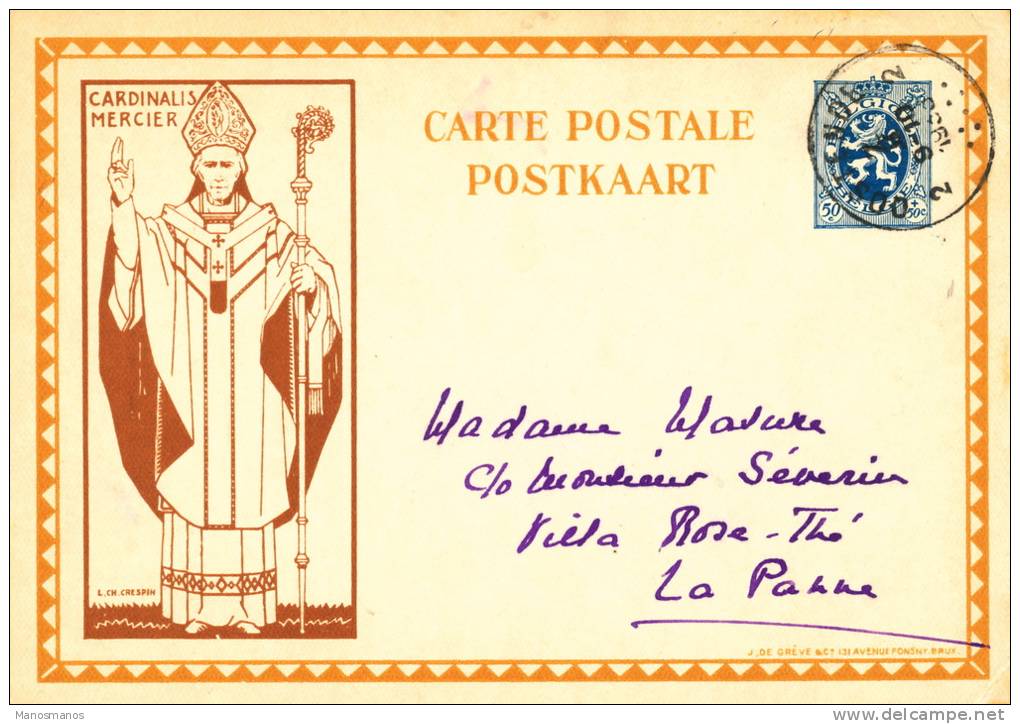 CARDINALIS
MERCIER
CARTE POSTALE
POSTKAART
BELGIQUE
BELGIË
50 c
+ 50 c
Madame Masure
c/o Monsieur Séverin
Villa Rose-Thé
La Panne
L. CH. CRESPIN
J. DE GRÈVE & Cº 131 AVENUE FONSNY. BRUX.
Manosmanos
www.delcampe.net